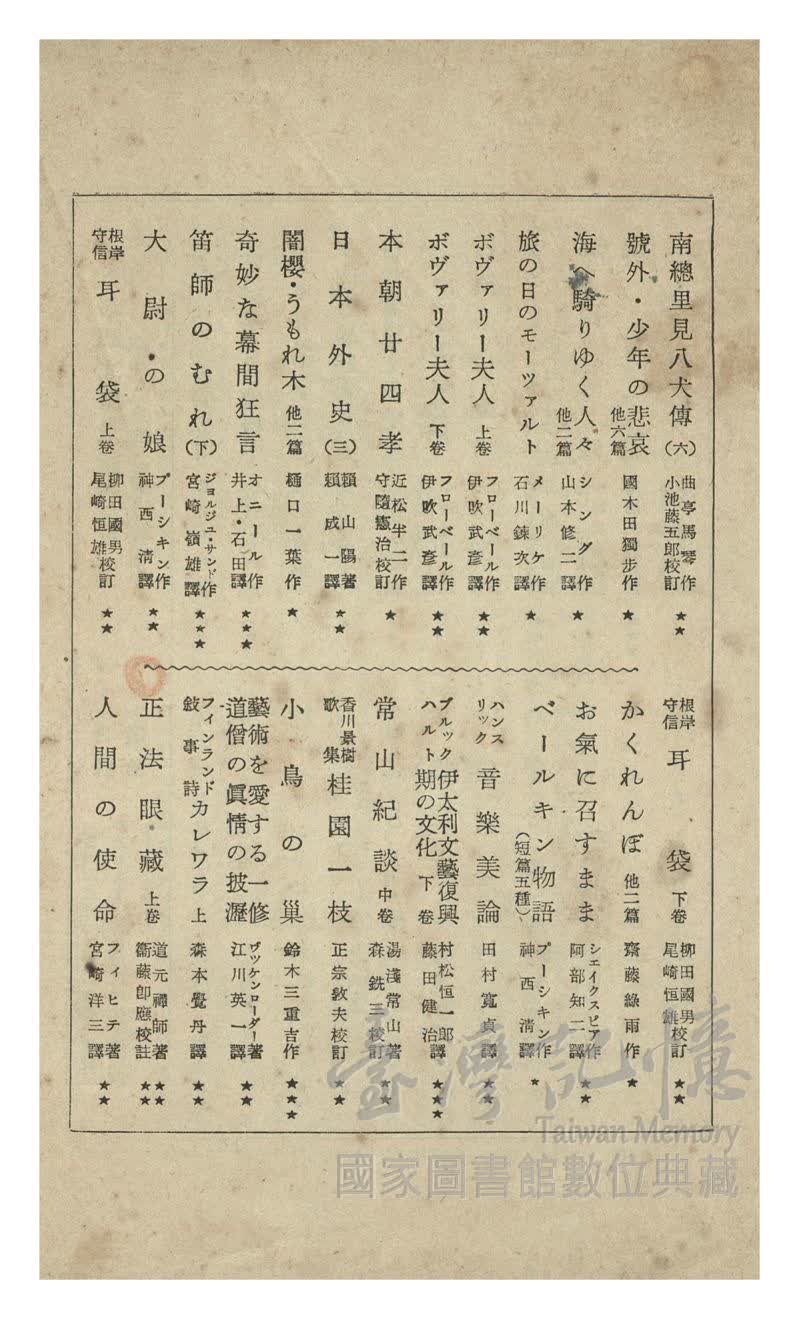 南總里見八犬傳(六) 曲亭馬琴作 小池藤五郎校訂 ★★
號外・少年の悲哀 他六篇 國木田獨步作 ★
海へ騎りゆく人々 他二篇 シング作 山本修二譯 ★
旅の日のモーツァルト メーリケ作 石川錬次譯 ★
ボヴァリー夫人 上卷 フローベール作 伊吹武彥譯 ★★
ボヴァリー夫人 下卷 フローベール作 伊吹武彥譯 ★★
本朝廿四孝 近松半二作 守隨憲治校訂 ★
日本外史(三) 賴山陽著 賴成一譯 ★★
闇櫻・うもれ木 他二篇 樋口一葉作 ★
奇妙な幕間狂言 オニール作 井上・石田譯 ★★★
笛師のむれ(下) ジョルジュ・サンド作 宮崎嶺雄譯 ★★★
大尉の娘 プーシキン作 神西淸譯 ★★
根岸守信 耳袋 上卷 柳田國男 尾崎恒雄校訂 ★★
根岸守信 耳袋 下卷 柳田國男 尾崎恒雄校訂 ★★
かくれんぼ 他二篇 齋藤綠雨作 ★
お氣に召すまま シェイクスピア作 阿部知二譯 ★★
ベールキン物語 (短篇五種) プーシキン作 神西淸譯 ★
ハンスリック 音樂美論 田村寬貞譯 ★★
ブルックハルト 伊太利文藝復興期の文化 下卷 村松恒一郎 藤田健治譯 ★★★
常山紀談 中卷 湯淺常山著 森銑三校訂 ★★
香川景樹歌集 桂園一枝 正宗敦夫校訂 ★★
小鳥の巢 鈴木三重吉作 ★★★
藝術を愛する一修道僧の眞情の披瀝 ワッケンローダー著 江川英一譯 ★★
フィンランド敍事詩 カレワラ 上 森本覺丹譯 ★★
正法眼藏 上卷 道元禪師著 衞藤卽應校註 ★★★★
人間の使命 フィヒテ著 宮崎洋三譯 ★★
臺灣記憶
Taiwan Memory
國家圖書館數位典藏